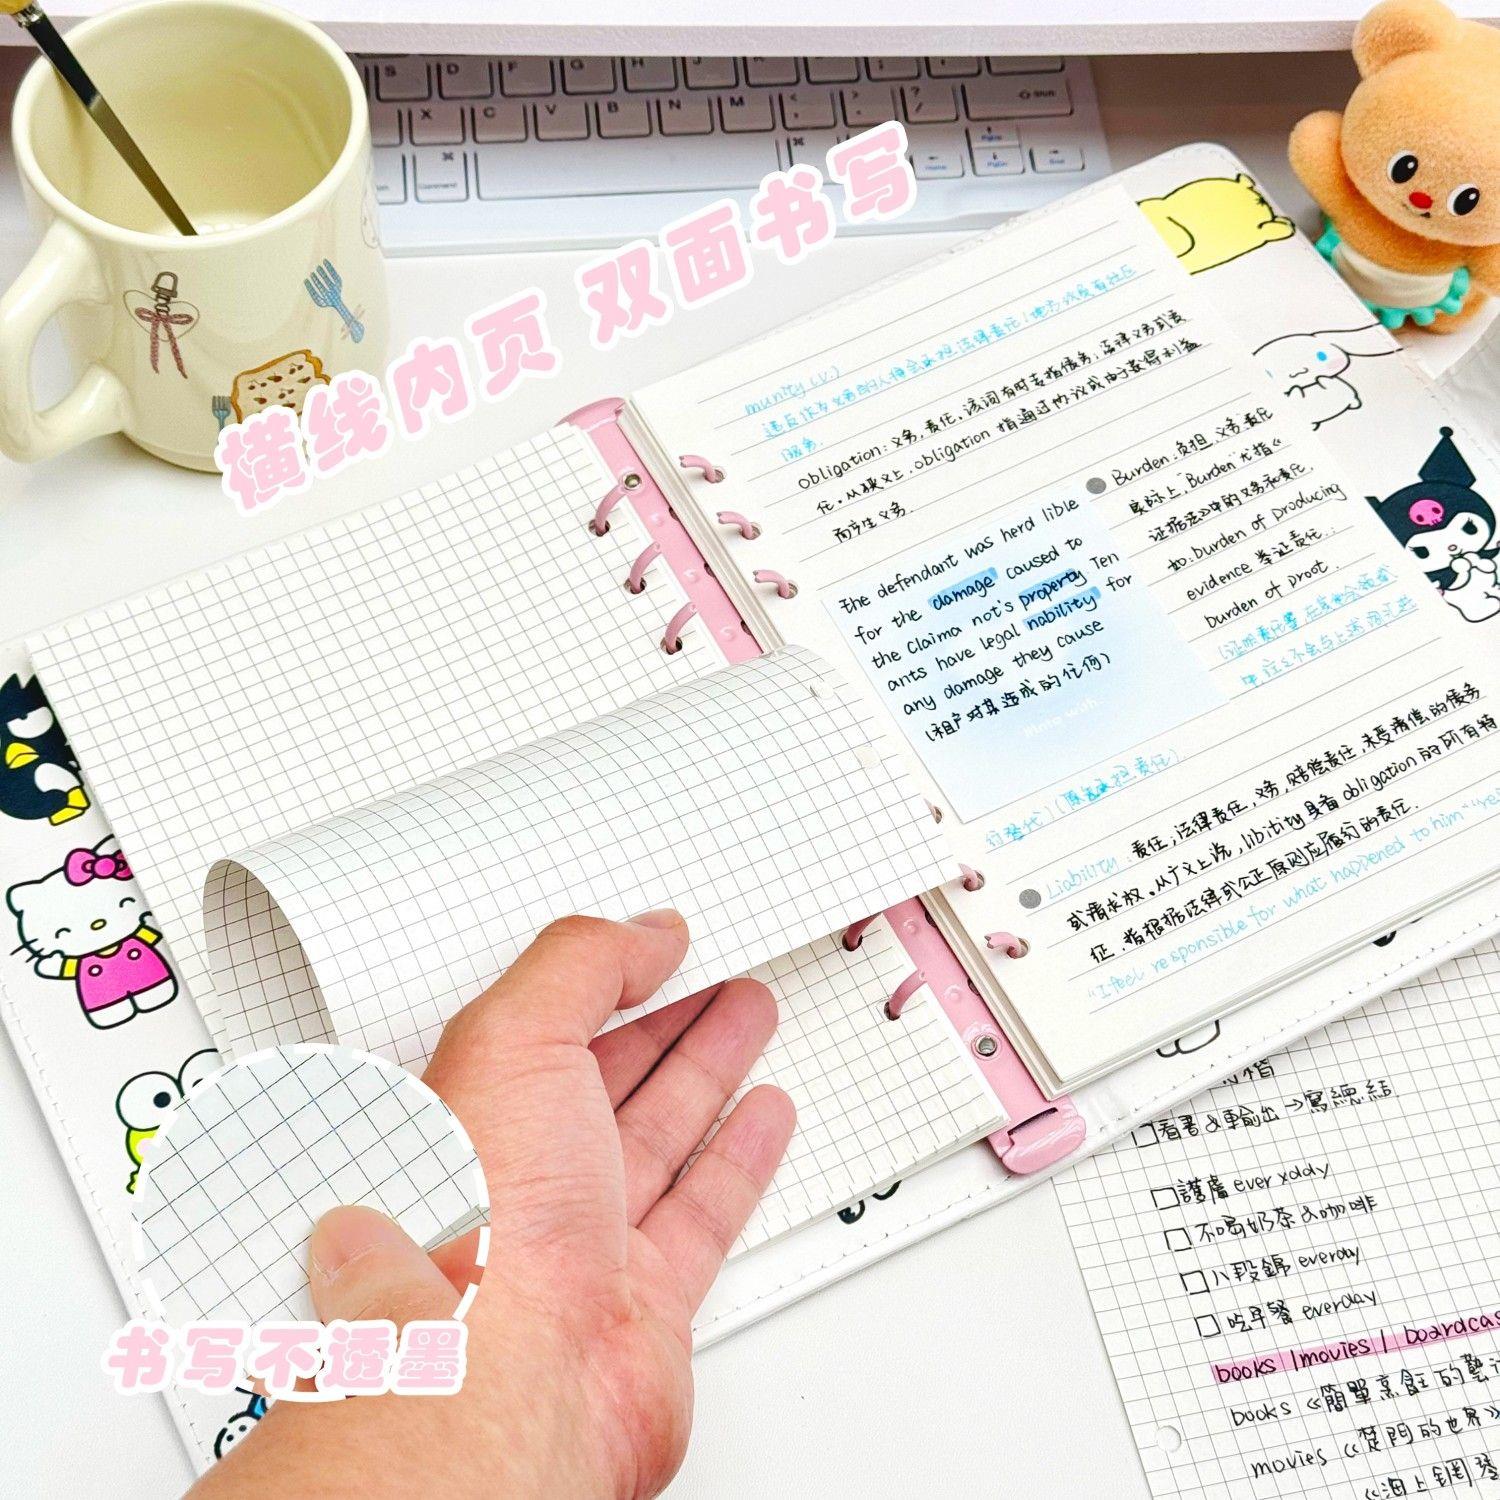 横线内页 双面书写
munity (v.)
服务.
obligation: 义务, 责任, 该词有时专指债务; 法律义务或责
任. 从狭义上, obligation 指通过协议或由于获得利益
而产生义务.
The defendant was herd lible
for the damage caused to
the claima not's property Ten
ants have legal nability for
any damage they cause
(租户对其造成的任何)
Burden: 负担, 义务责任
实际上, "Burden"尤指《
证据法》中的义务和责任.
如: burden of producing
evidence 举证责任.;
burden of proot.
Liability: 责任; 法律责任, 义务, 赔偿责任, 未受清偿的债务
或请求权. 从广义上说, libitity具备obligation的所有特
征. 指根据法律或公正原则应履行的责任.
"I feel responsible for what happened to him"
书写不透墨
看書&輸出→寫總結
護膚 ever xddy
不喝奶茶&咖啡
八段錦 everday
吃早餐 everday
books | movies | boardcas
books 《簡單烹飪的藝
movies 《楚門的世界》
《海上鋼琴
S D F G H J K L
X C V B N M
Command
Shift
Home PgDn End